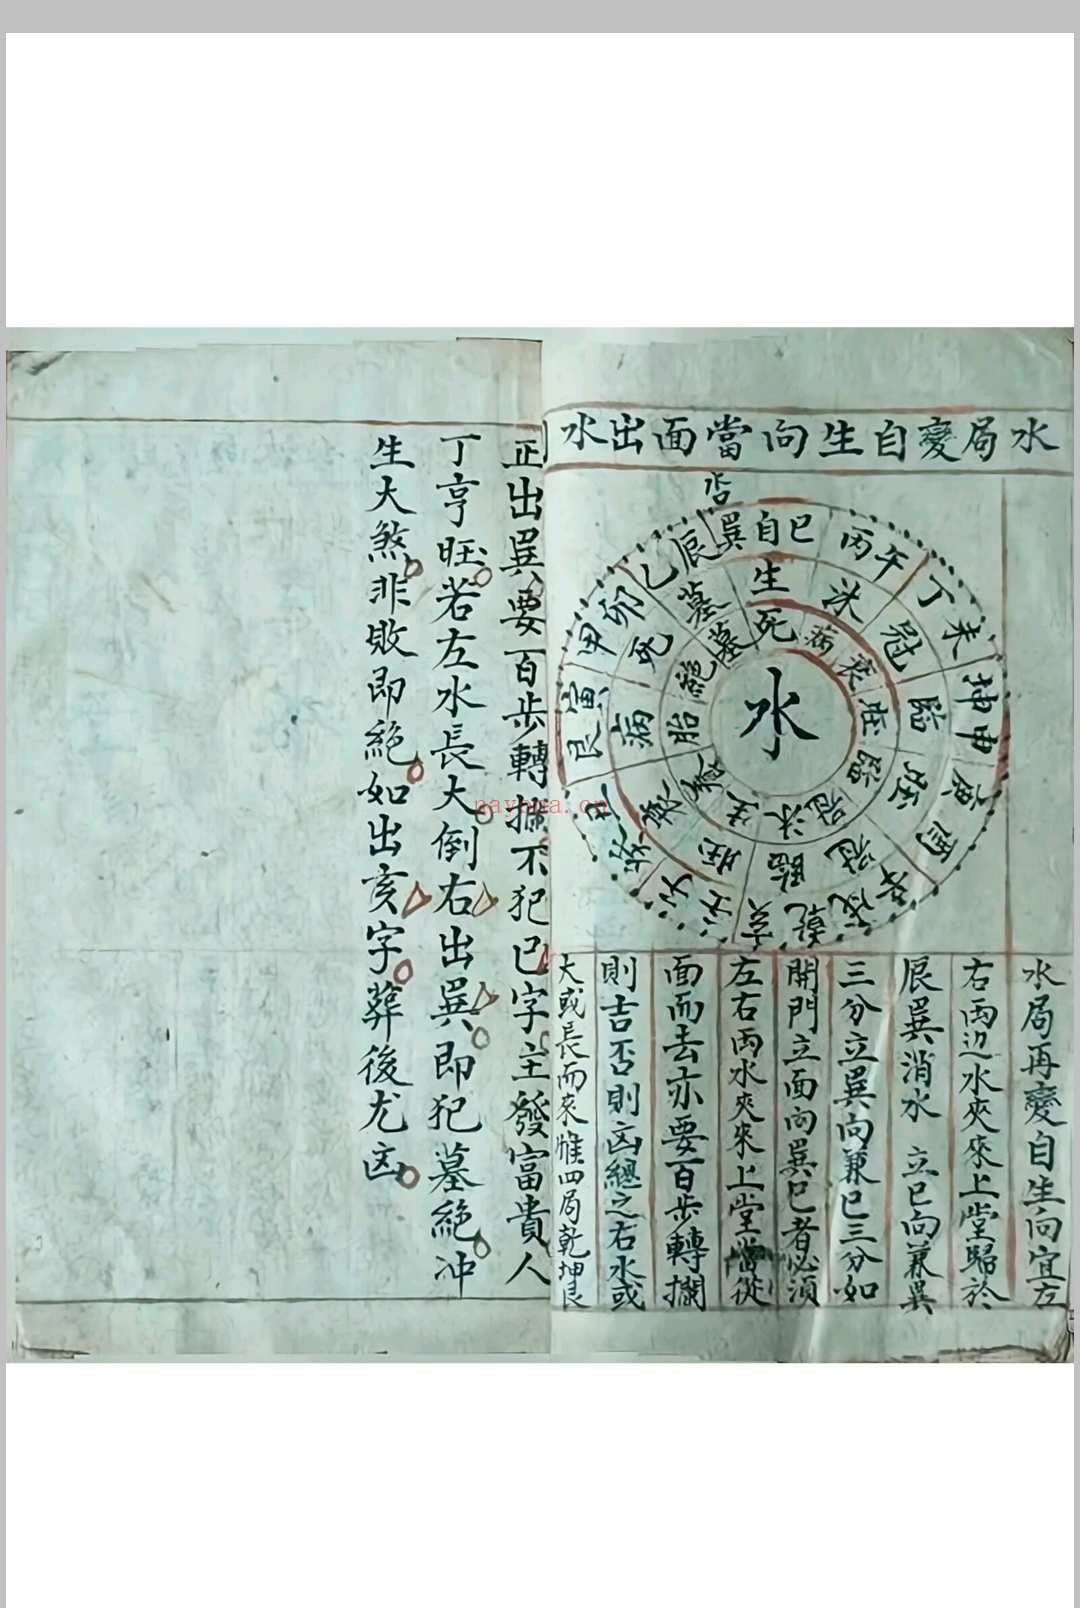 水局變自生向當面出水
水
巽自巳
丙午
丁未
坤申
庚酉
辛戌
乾亥
壬子
癸丑
艮寅
甲卯
乙辰
生
沐
冠
臨
旺
病
死
墓
死
病
衰
旺
臨
冠
沐
生
養
胎
絕
墓
水局再變自生向宜左
右両边水夾來上堂歸於
辰巽消水 立巳向兼巽
三分立巽向兼巳三分如
開門立面向巽巳者必須
左右両水夾來上堂當從
面而去亦要一百步轉攔
則吉否則凶總之右水或
大或長而來惟四局乾坤艮
正出巽要一百步轉攔不犯巳字主發富貴人
丁亨旺若左水長大倒右出巽即犯墓絕冲
生大煞非敗即絕如出亥字葬後尤凶
nayona.cn